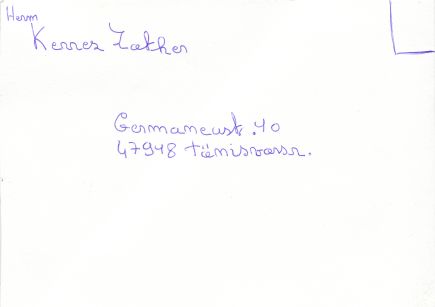 Herrn
Kerres Lother
Germaneustr. 40
47918 Tönisvorsr.